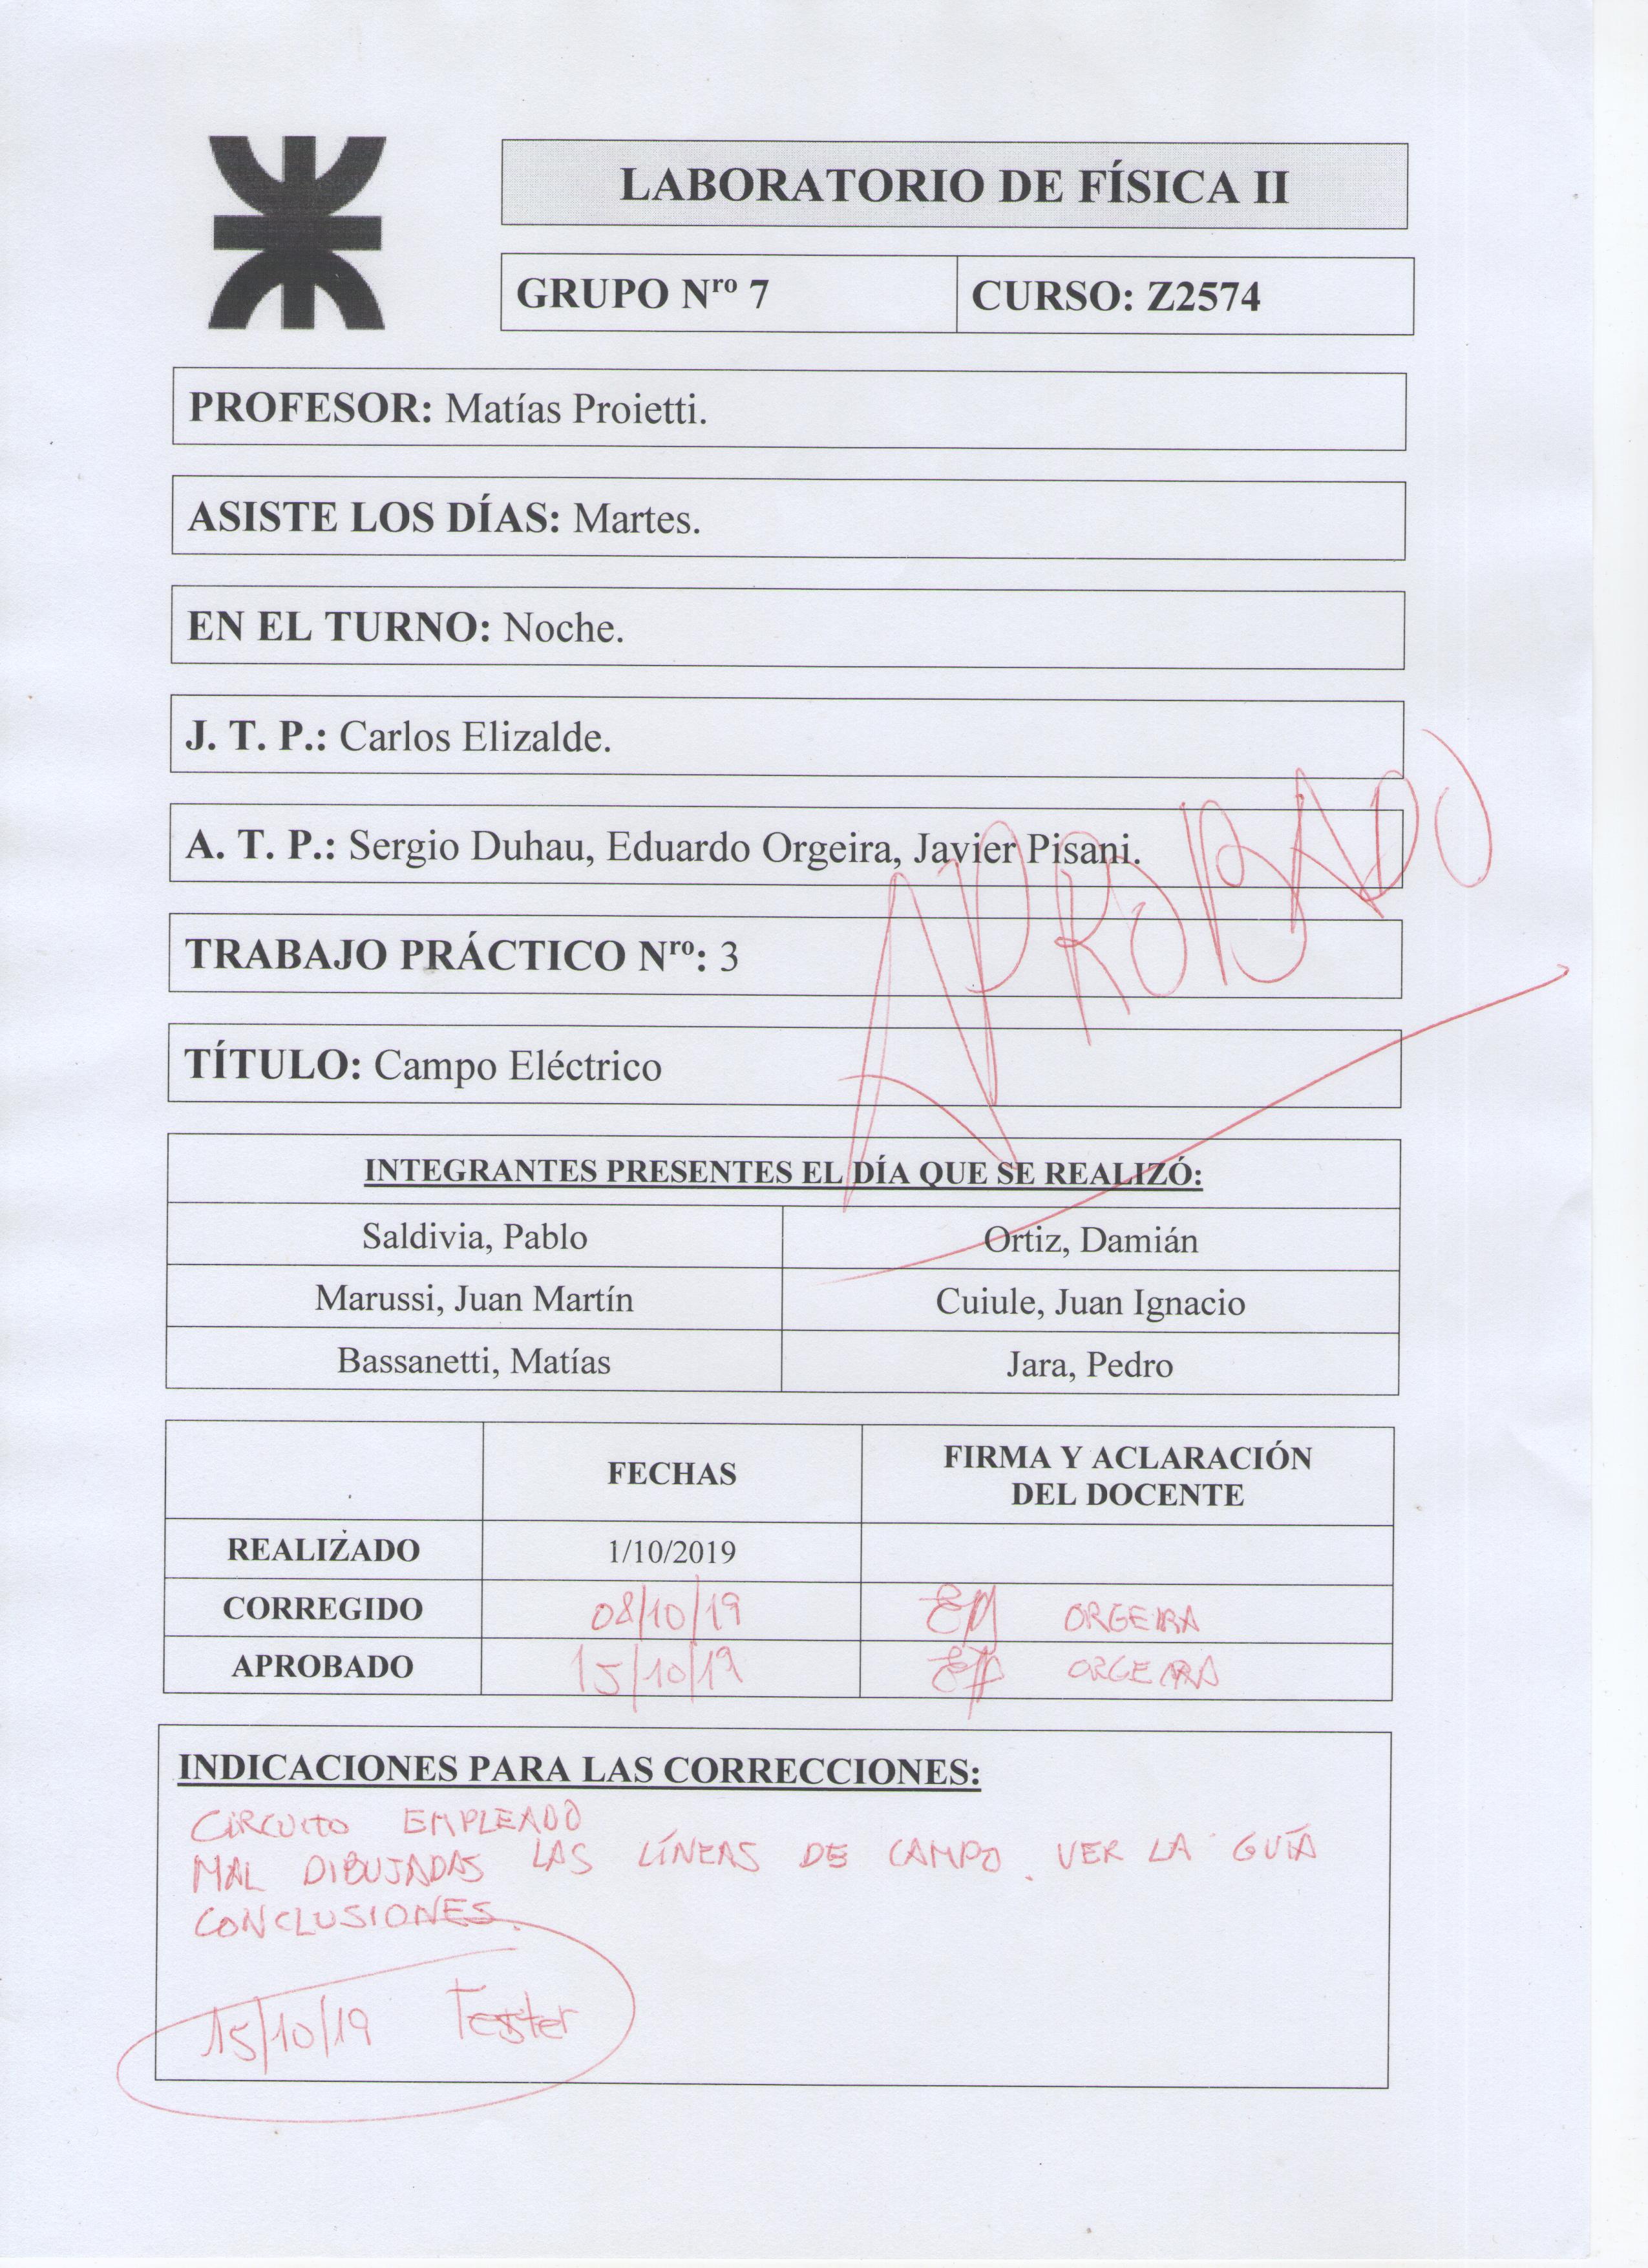 LABORATORIO DE FÍSICA II
GRUPO Nro 7
CURSO: Z2574
PROFESOR: Matías Proietti.
ASISTE LOS DÍAS: Martes.
EN EL TURNO: Noche.
J. T. P.: Carlos Elizalde.
A. T. P.: Sergio Duhau, Eduardo Orgeira, Javier Pisani.
APROBADO
TRABAJO PRÁCTICO Nro: 3
TÍTULO: Campo Eléctrico
INTEGRANTES PRESENTES EL DÍA QUE SE REALIZÓ:
Saldivia, Pablo Ortiz, Damián
Marussi, Juan Martín Cuiule, Juan Ignacio
Bassanetti, Matías Jara, Pedro
FECHAS
FIRMA Y ACLARACIÓN
DEL DOCENTE
REALIZADO 1/10/2019
CORREGIDO 08/10/19 ORGEIRA
APROBADO 15/10/19 ORGEIRA
INDICACIONES PARA LAS CORRECCIONES:
CIRCUITO EMPLEADO
MAL DIBUJADAS LAS LÍNEAS DE CAMPO. VER LA GUÍA
CONCLUSIONES.
15/10/19 Tester